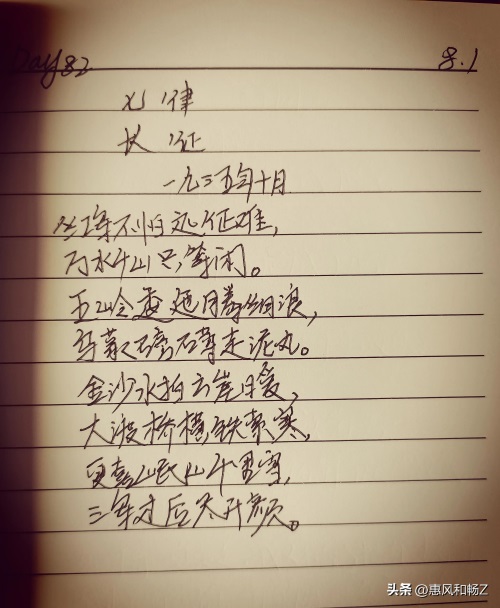 Day 82 8.1
七律
长征
一九三五年十月
红军不怕远征难,
万水千山只等闲。
五岭逶迤腾细浪,
乌蒙磅礴走泥丸。
金沙水拍云崖暖,
大渡桥横铁索寒,
更喜岷山千里雪,
三军过后尽开颜。
头条 @惠风和畅Z